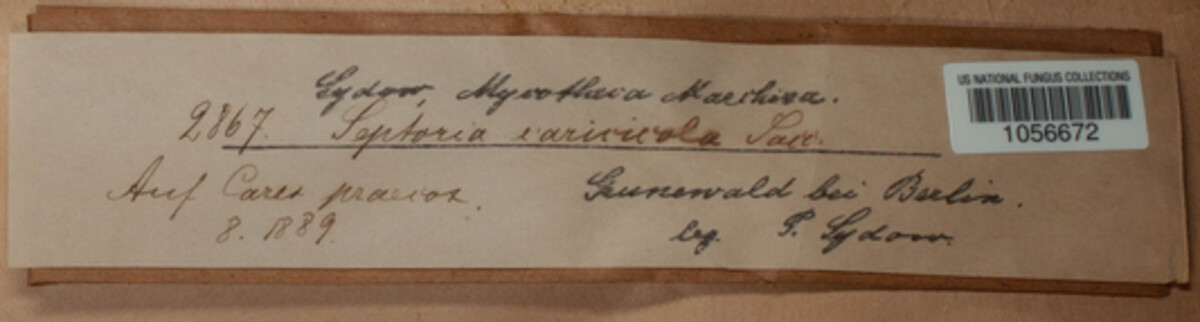 Sydow, Mycotheca Marchica.
2867. Septoria caricicola Sacc.
Auf Carex praecox.
8. 1889.
Grunewald bei Berlin.
leg. P. Sydow.
US NATIONAL FUNGUS COLLECTIONS
1056672